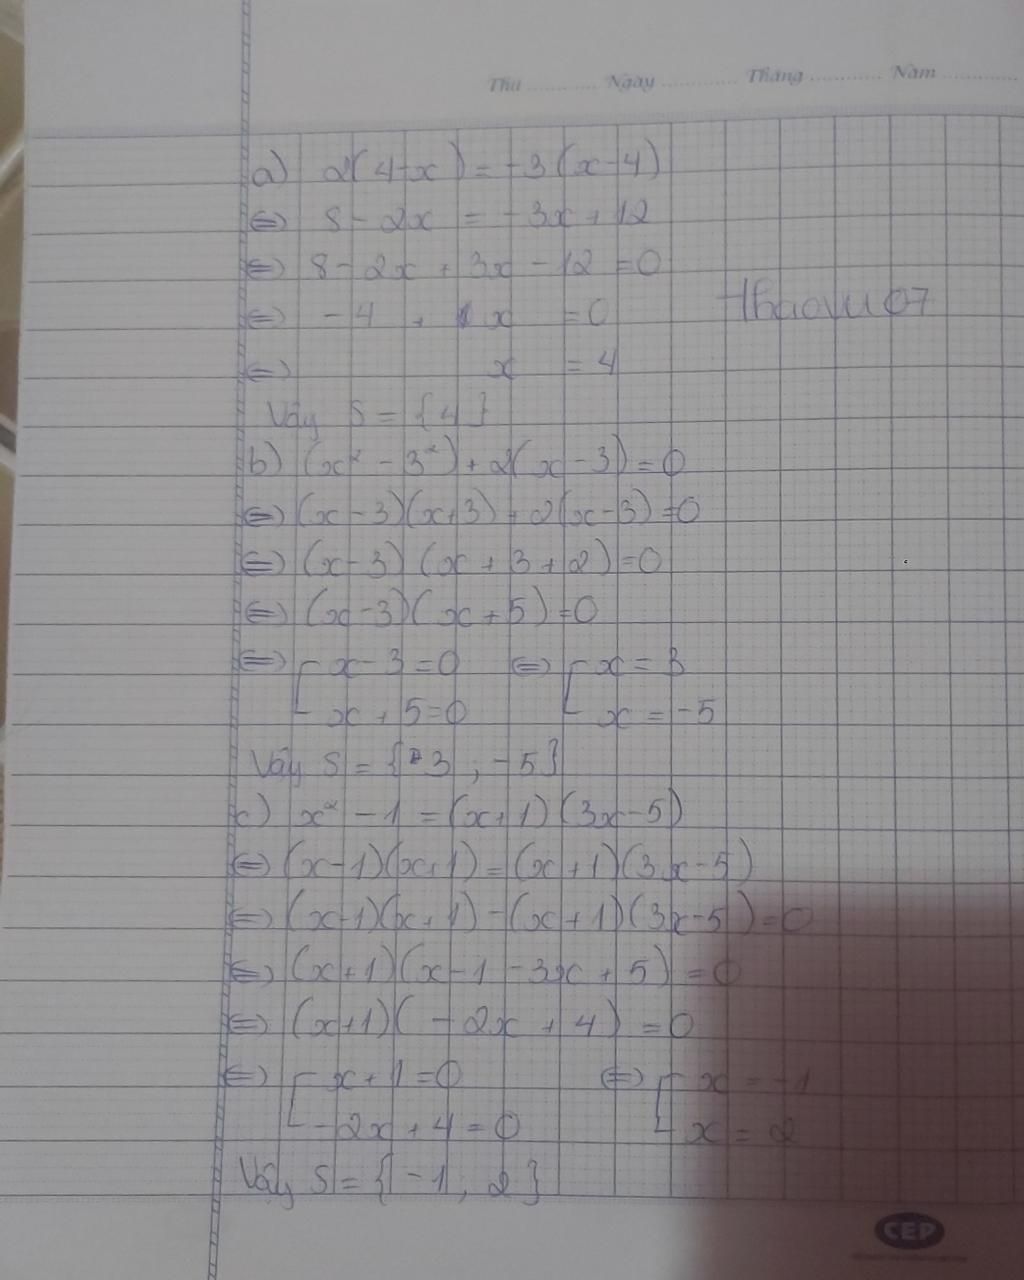 Thứ ........... Ngày ........... Tháng ........... Năm ...........
a) 2(4-x) = -3(x-4)
⇔ 8 - 2x = -3x + 12
⇔ 8 - 2x + 3x - 12 = 0
⇔ -4 + x = 0
thaovu07
⇔ x = 4
Vậy S = {4}
b) (x² - 3²) + 2(x-3) = 0
⇔ (x-3)(x+3) + 2(x-3) = 0
⇔ (x-3)(x+3+2) = 0
⇔ (x-3)(x+5) = 0
⇔ [ x-3 = 0 ⇔ [ x = 3
x+5 = 0 x = -5
Vậy S = {3 ; -5}
c) x² - 1 = (x+1)(3x-5)
⇔ (x-1)(x+1) = (x+1)(3x-5)
⇔ (x-1)(x+1) - (x+1)(3x-5) = 0
⇔ (x+1)(x-1-3x+5) = 0
⇔ (x+1)(-2x+4) = 0
⇔ [ x+1 = 0 ⇔ [ x = -1
-2x+4 = 0 x = 2
Vậy S = {-1 ; 2}
CEP